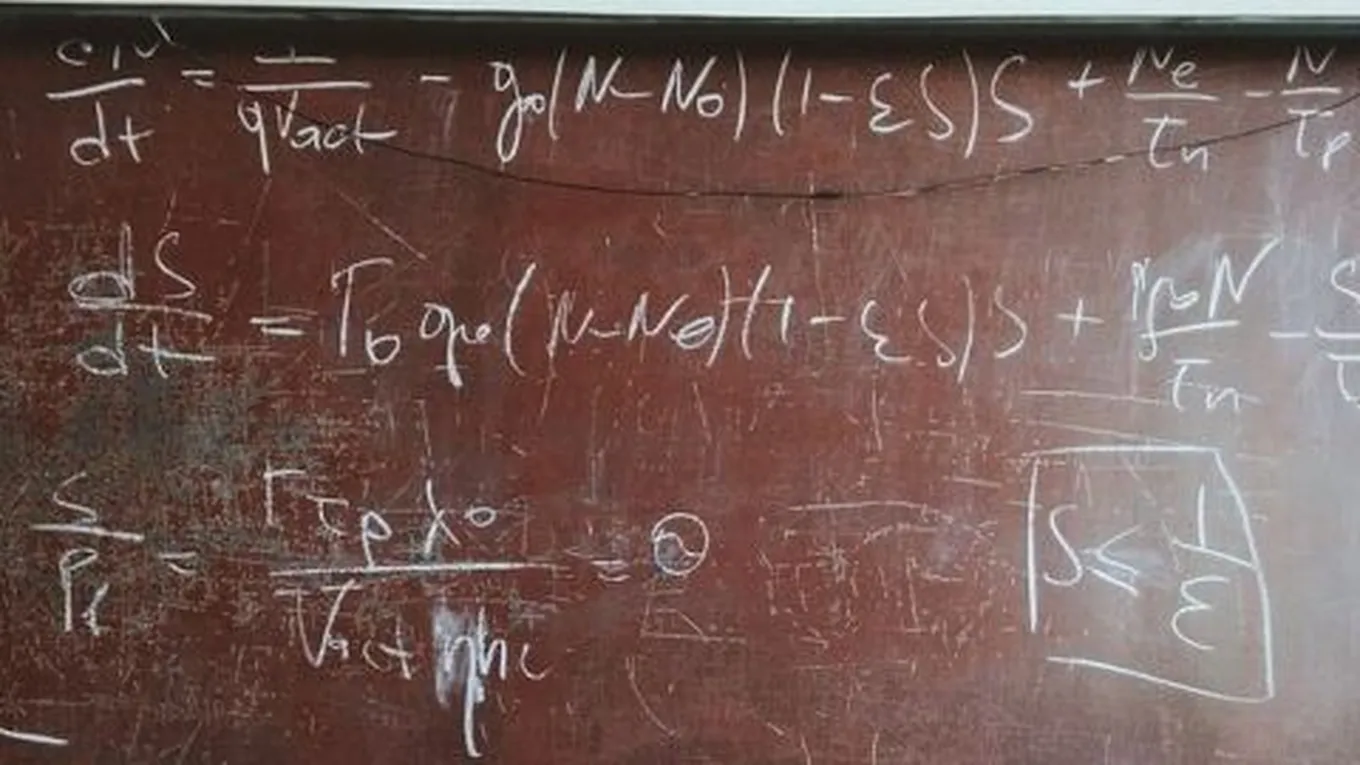 dN/dt = I/qVact - g₀(N-N₀)(1-εS)S + Ne/τn - N/τp
dS/dt = Γ₀g₀(N-N₀)(1-εS)S + Γβ₀N/τn - S/τ
S/Pf = Γτpλ₀/Vactηhc = ϑ
S ≤ 1/ε